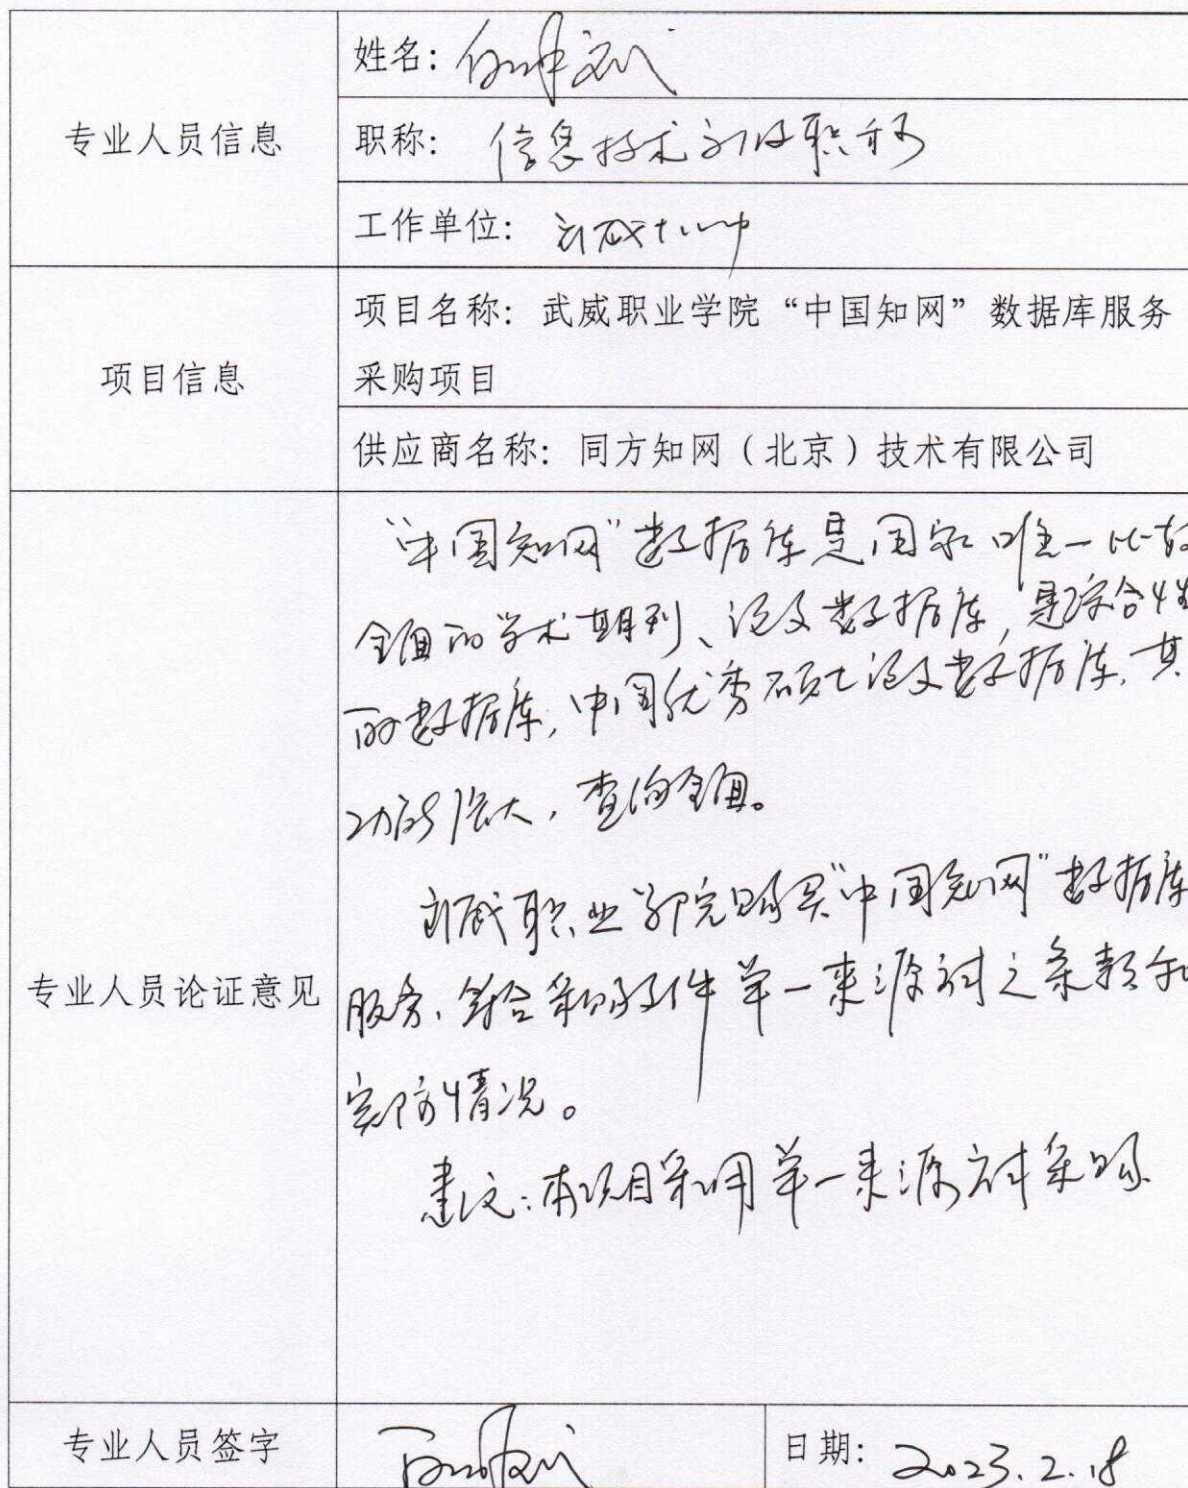 专业人员信息
姓名：
职称：信息技术副高职称
工作单位：武威十一中
项目信息
项目名称：武威职业学院“中国知网”数据库服务
采购项目
供应商名称：同方知网（北京）技术有限公司
专业人员论证意见
“中国知网”数据库是国家唯一比较
全面的学术期刊、论文数据库，是综合性
的数据库，中国优秀硕士论文数据库，其
功能强大，查询全面。
武威职业学院购买“中国知网”数据库
服务，符合采购文件单一来源 之条款和
实际情况。
建议：本项目采用单一来源方式采购
专业人员签字
日期：2023.2.18